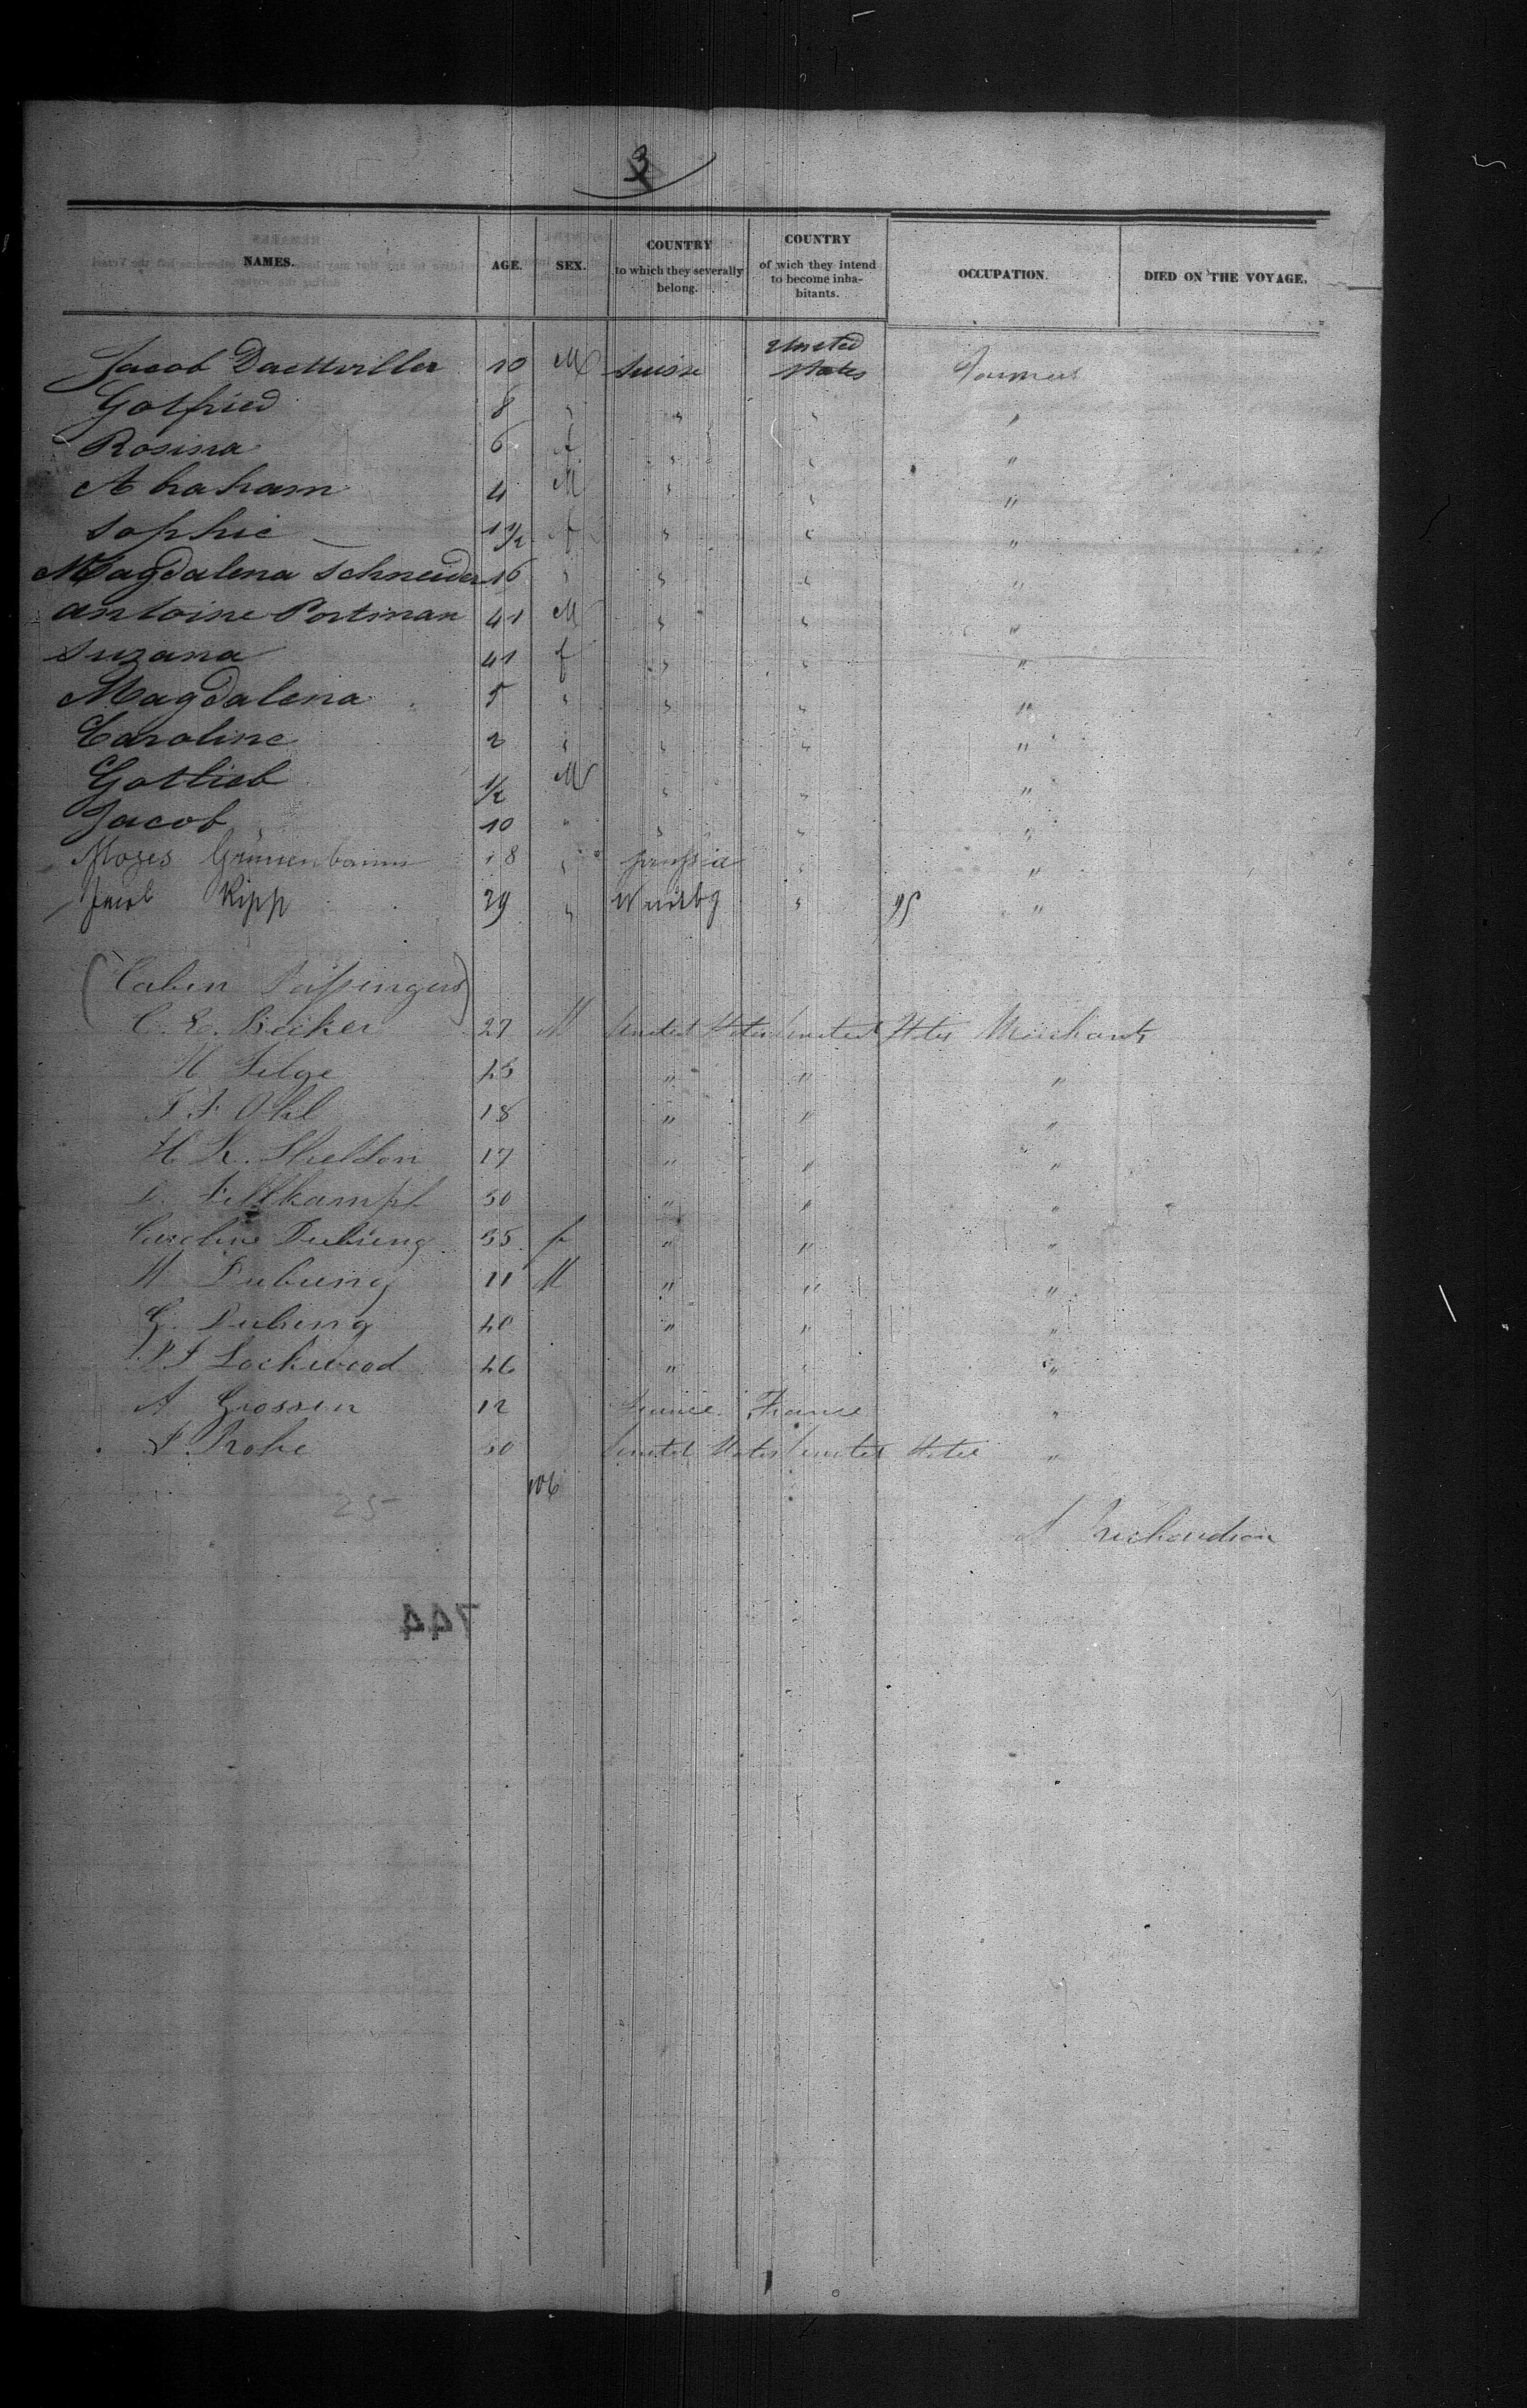 3
NAMES. AGE. SEX. COUNTRY to which they severally belong. COUNTRY of wich they intend to become inhabitants. OCCUPATION. DIED ON THE VOYAGE.
Jacob Daettwiller 10 M Suisse United States Farmers
Gotfried 8 " " " "
Rosina 6 f " " "
Abraham 4 M " " "
Sophie 1 1/2 f " " "
Magdalena Schneider 16 " " " "
Antoine Portman 41 M " " "
Suzana 41 f " " "
Magdalena 5 " " " "
Caroline 2 " " " "
Gottlieb 1/2 M " " "
Jacob 10 " " " "
Moses Grünenbaum 18 " " "
Jacob Kipp 29 " " 95 "
(Cabin Passengers)
C. E. Becker 27 M United States United States Merchants
H " " "
18 " " "
H Sheldon 17 " " "
50 " " "
Caroline Dubuing 35 f " " "
Dubuing 11 M " " "
G. Dubuing 40 " " "
Lockwood 46 " " "
A Grossen 12 France "
United States United States "
106
25
Richardson
744